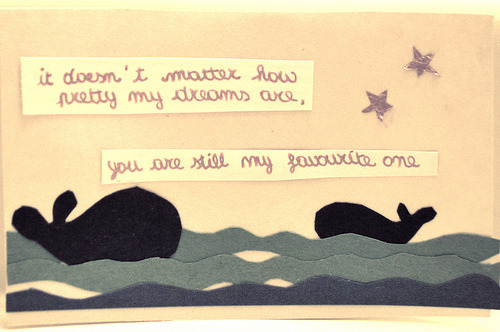 it doesn't matter how
pretty my dreams are,
you are still my favourite one